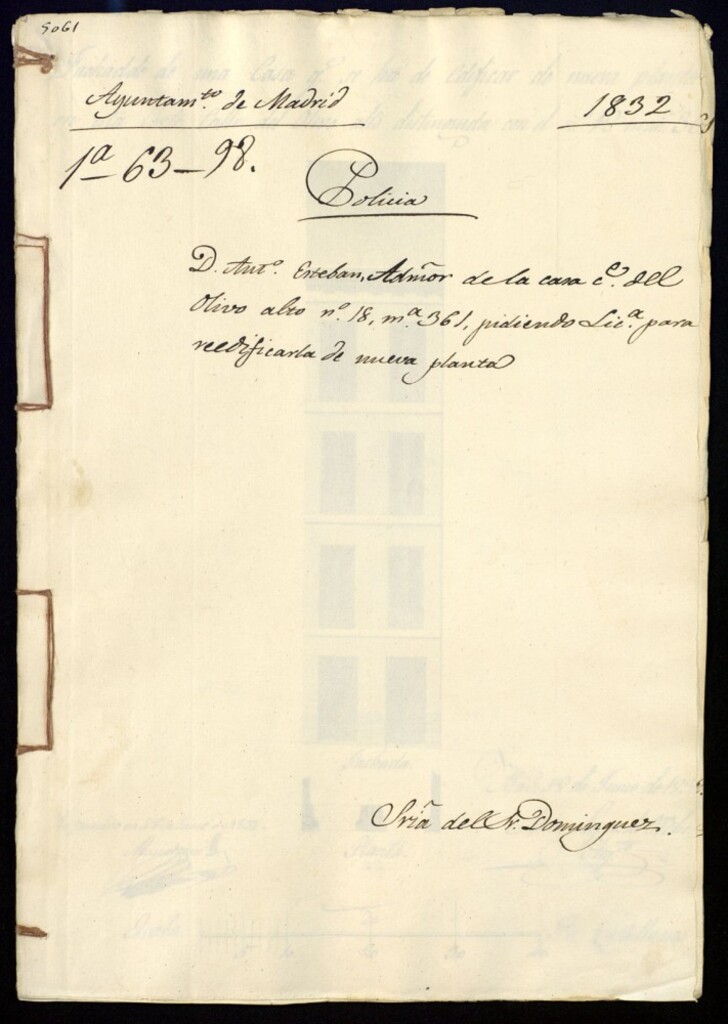 5061
Ayuntam.to de Madrid
1832
1a 63-98.
Policia
D. Ant.o Esteban, Admor de la casa c.e del
Olivo alto n.o 18, m.a 361, pidiendo Lic.a para
reedificarla de nueva planta
Sria del Sr. Dominguez.